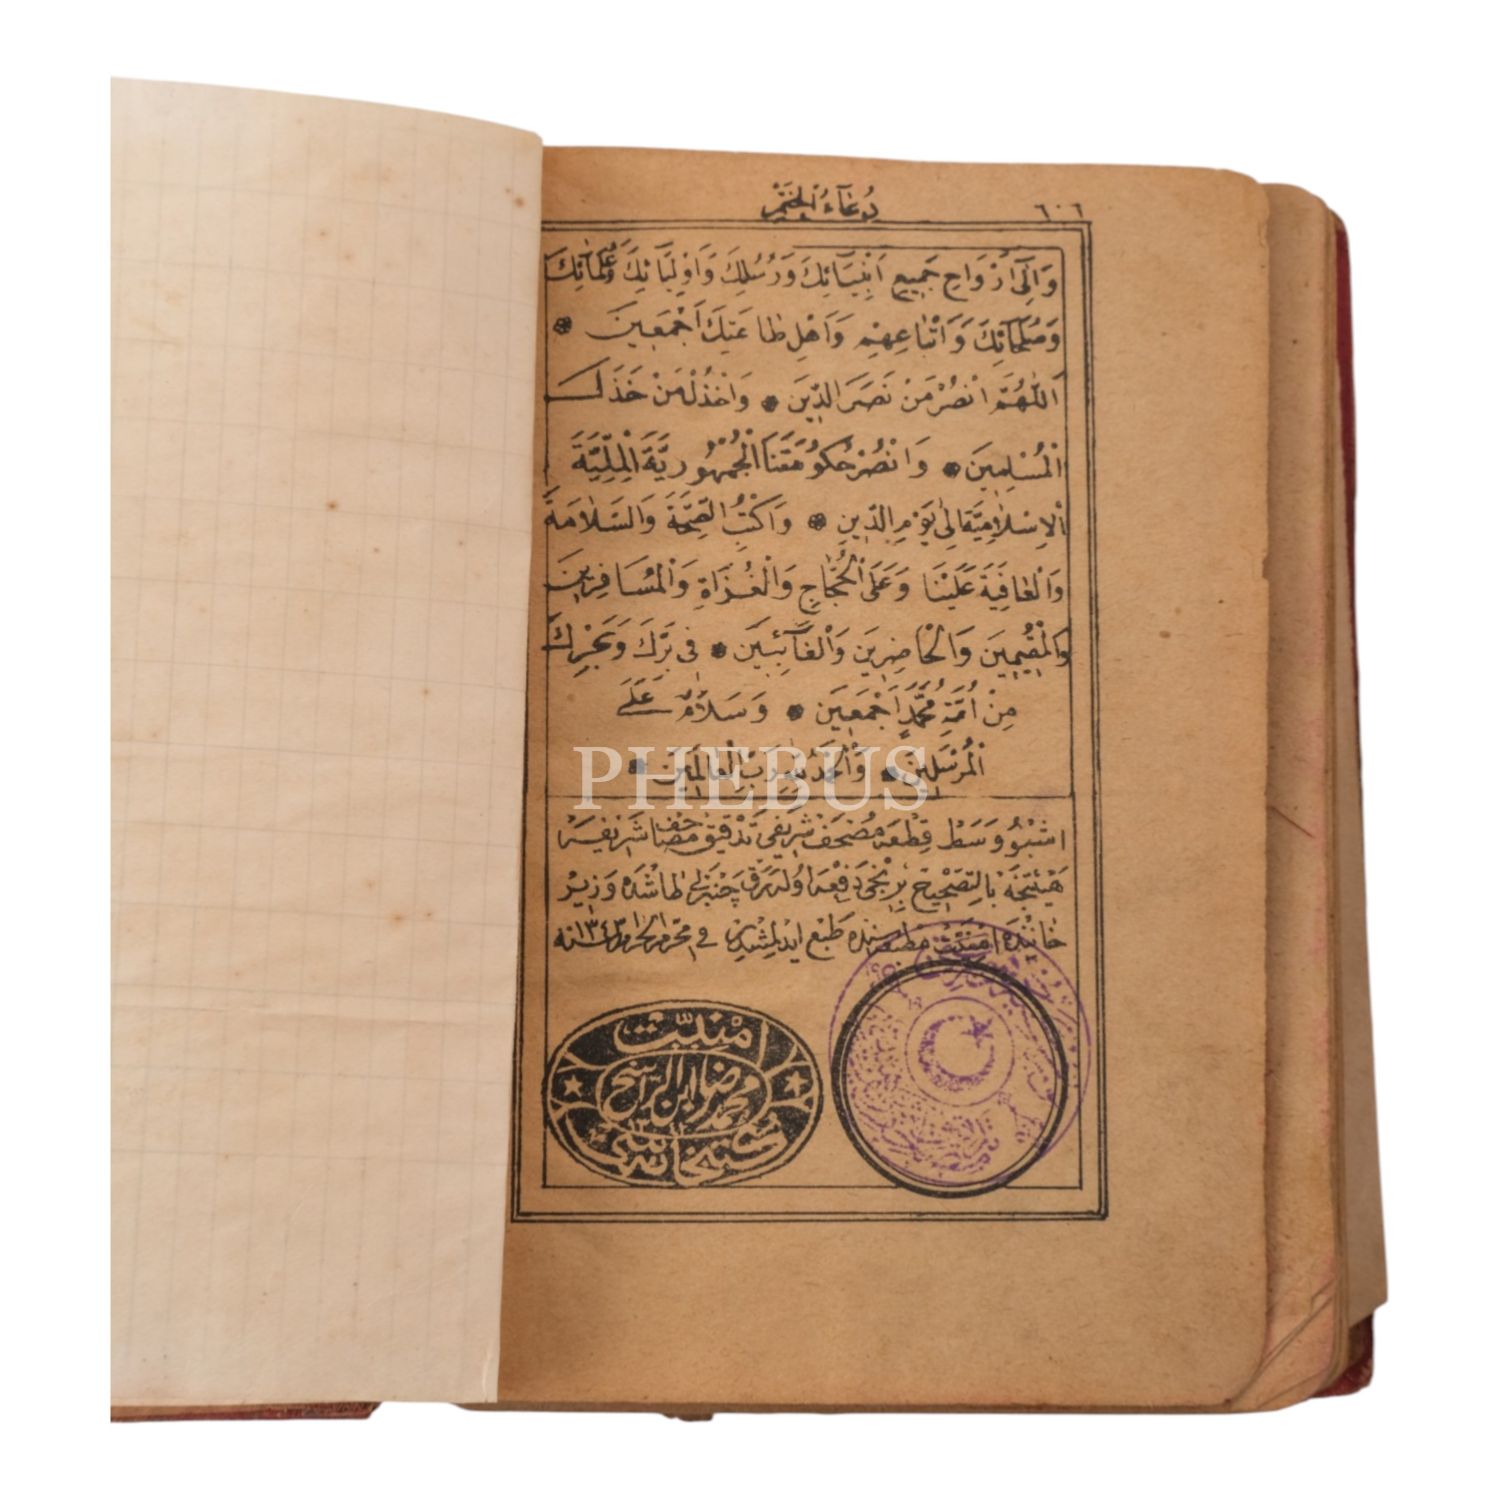 ٦٠٦
دُعَآءُ الْخَتْمِ
وَاِلٰى اَرْوَاحِ جَمِيعِ اَنْبِيَآئِكَ وَرُسُلِكَ وَاَوْلِيَآئِكَ وَعُلَمَآئِكَ
وَصُلَحَآئِكَ وَاَتْبَاعِهِمْ وَاَهْلِ طَاعَتِكَ اَجْمَعِينَ ❁
اَللّٰهُمَّ انْصُرْ مَنْ نَصَرَ الدِّينَ ❁ وَاخْذُلْ مَنْ خَذَلَ
الْمُسْلِمِينَ ❁ وَانْصُرْ حُكُومَتَنَا الْجُمْهُورِيَّةَ الْمِلِّيَّةَ
الْاِسْلَامِيَّةَ اِلٰى يَوْمِ الدِّينِ ❁ وَاكْتُبِ الصِّحَّةَ وَالسَّلَامَةَ
وَالْعَافِيَةَ عَلَيْنَا وَعَلَى الْحُجَّاجِ وَالْغُزَاةِ وَالْمُسَافِرِينَ
وَالْمُقِيمِينَ وَالْحَاضِرِينَ وَالْغَآئِبِينَ ❁ فِى بَرِّكَ وَبَحْرِكَ
مِنْ اُمَّةِ مُحَمَّدٍ اَجْمَعِينَ ❁ وَسَلَامٌ عَلَى
الْمُرْسَلِينَ ❁ وَالْحَمْدُ لِلّٰهِ رَبِّ الْعَالَمِينَ ❁
PHEBUS
اشبو وسط قطعه مصحف شريفى تدقيق مصاحف شريفه
هيئتجه بالتصحيح برنجى دفعه اوله رق چنبرلى طاشده وزير
خاننده امنيت مطبعه سنده طبع ايدلمشدر فى محرم الحرام سنه ١٣٤٣
امنيت
محمد رضا ابن ابراهيم
كتبخانه سى